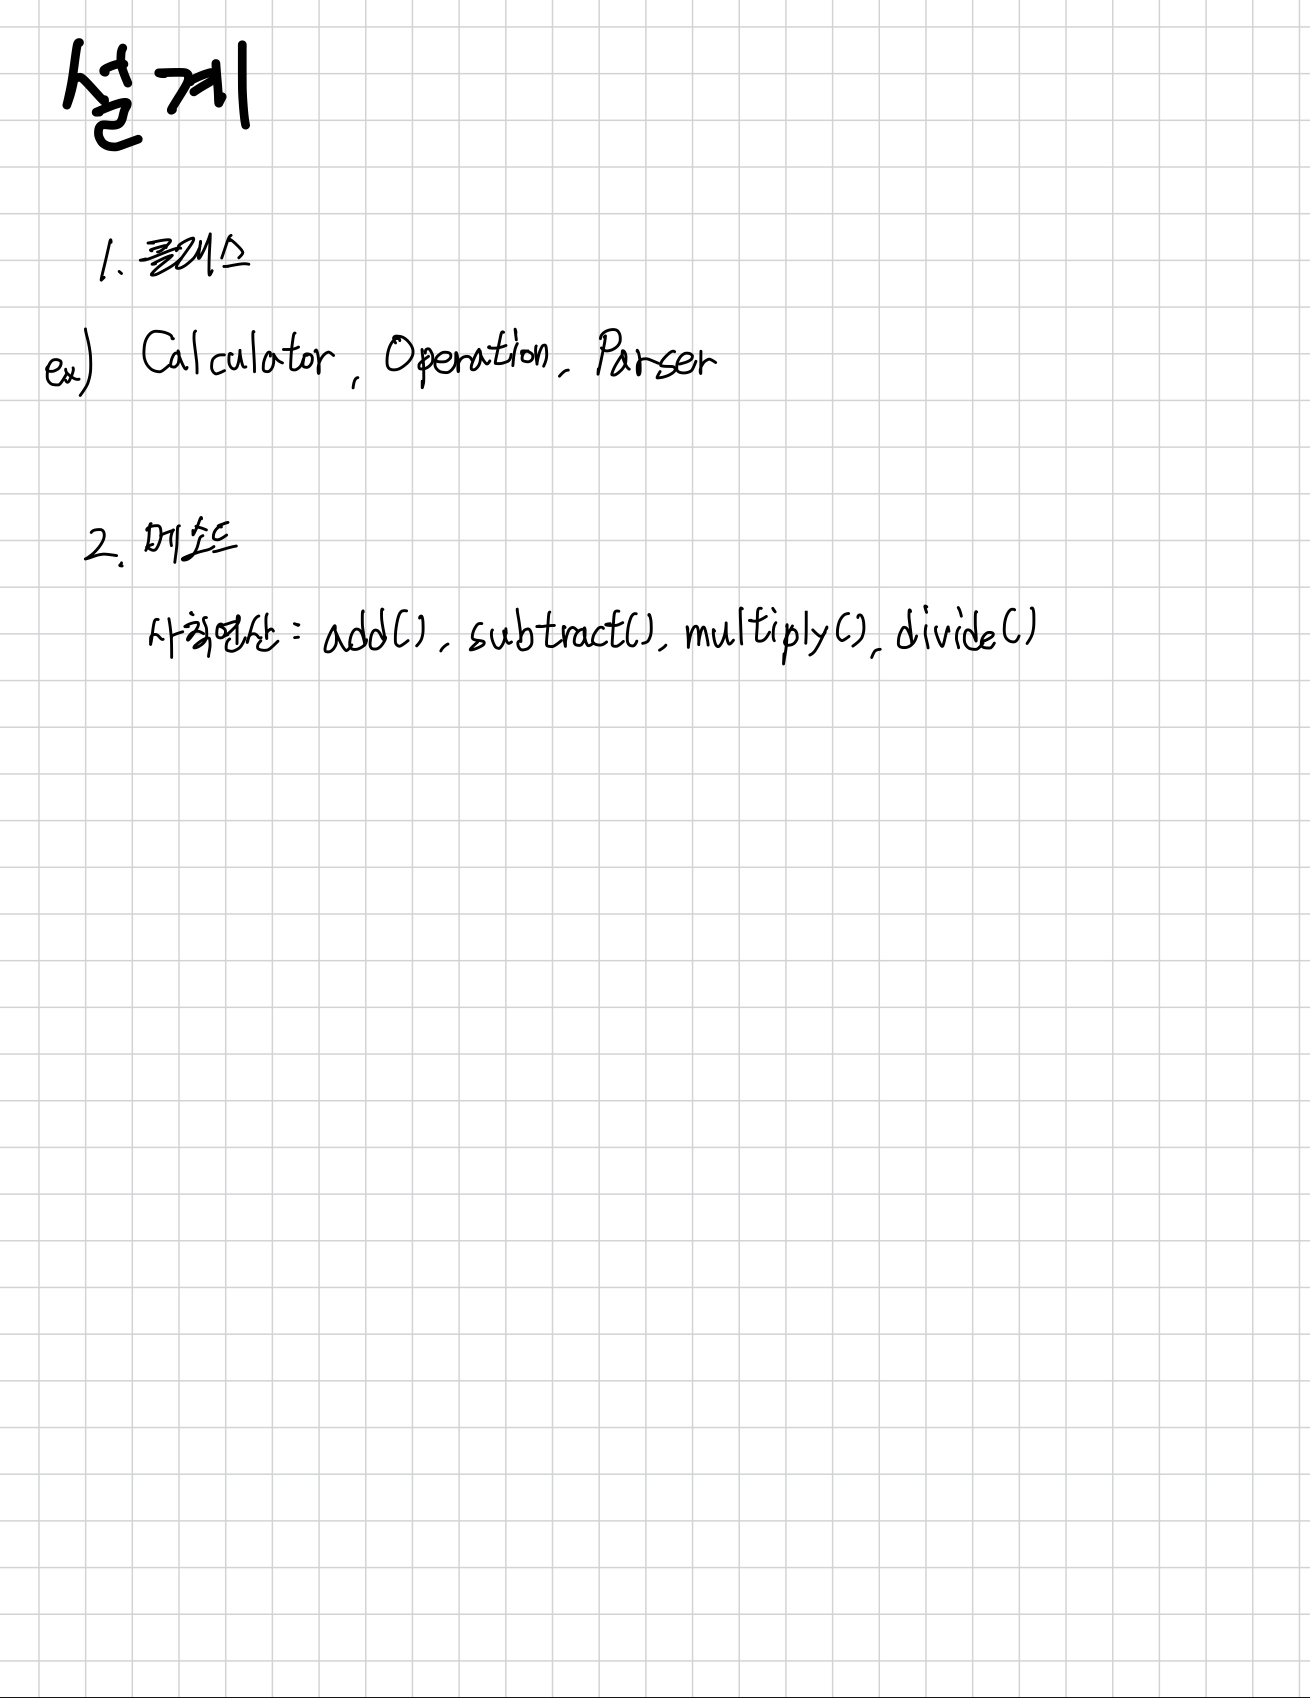 설계
1. 클래스
ex) Calculator, Operation, Parser
2. 메소드
사칙연산 : add(), subtract(), multiply(), divide()